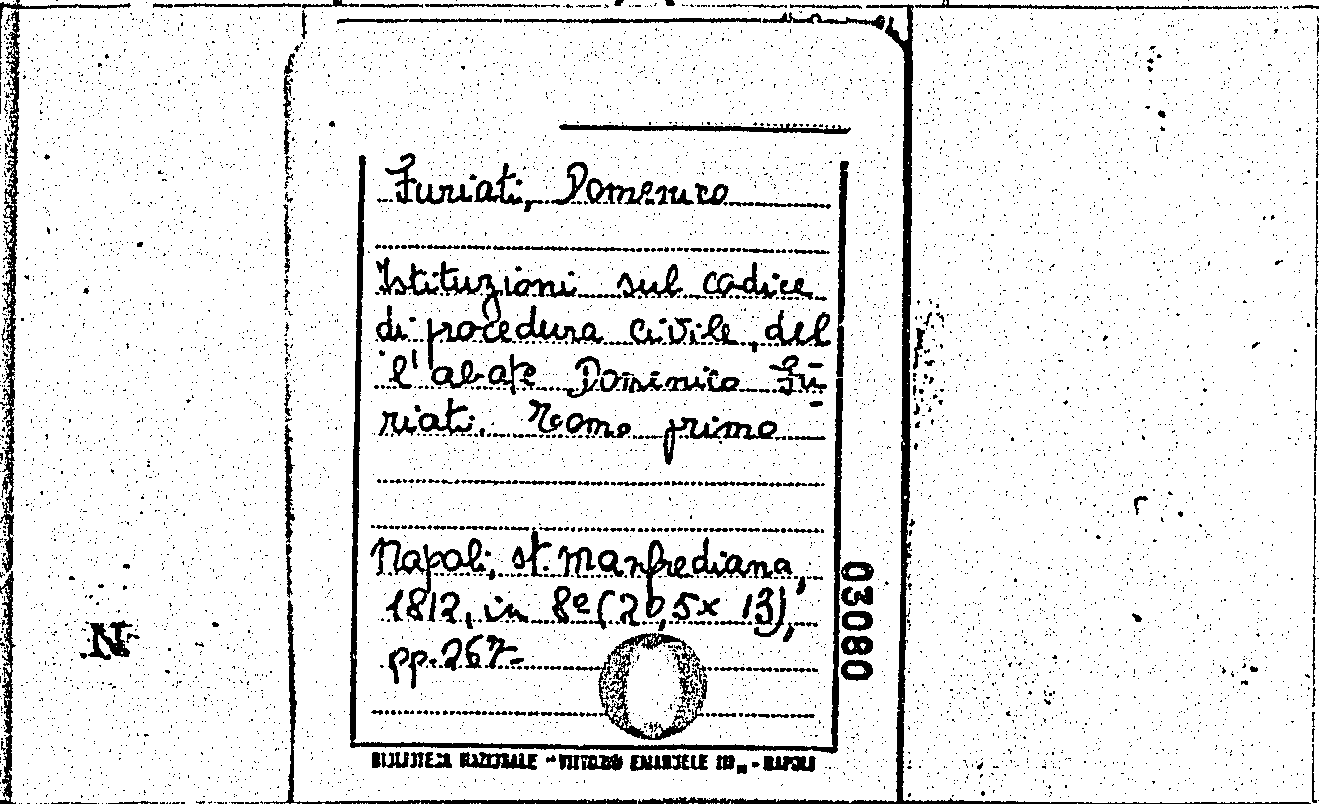 Furiati, Domenico
Istituzioni sul codice
di procedura civile, del
l'abate Domenico Fu=
riati. Tomo primo
Napoli, st. Manfrediana,
1812, in 8º (20,5x 13),
pp. 267-
03080
N
BIBLIOTECA NAZIONALE "VITTORIO EMANUELE III" - NAPOLI